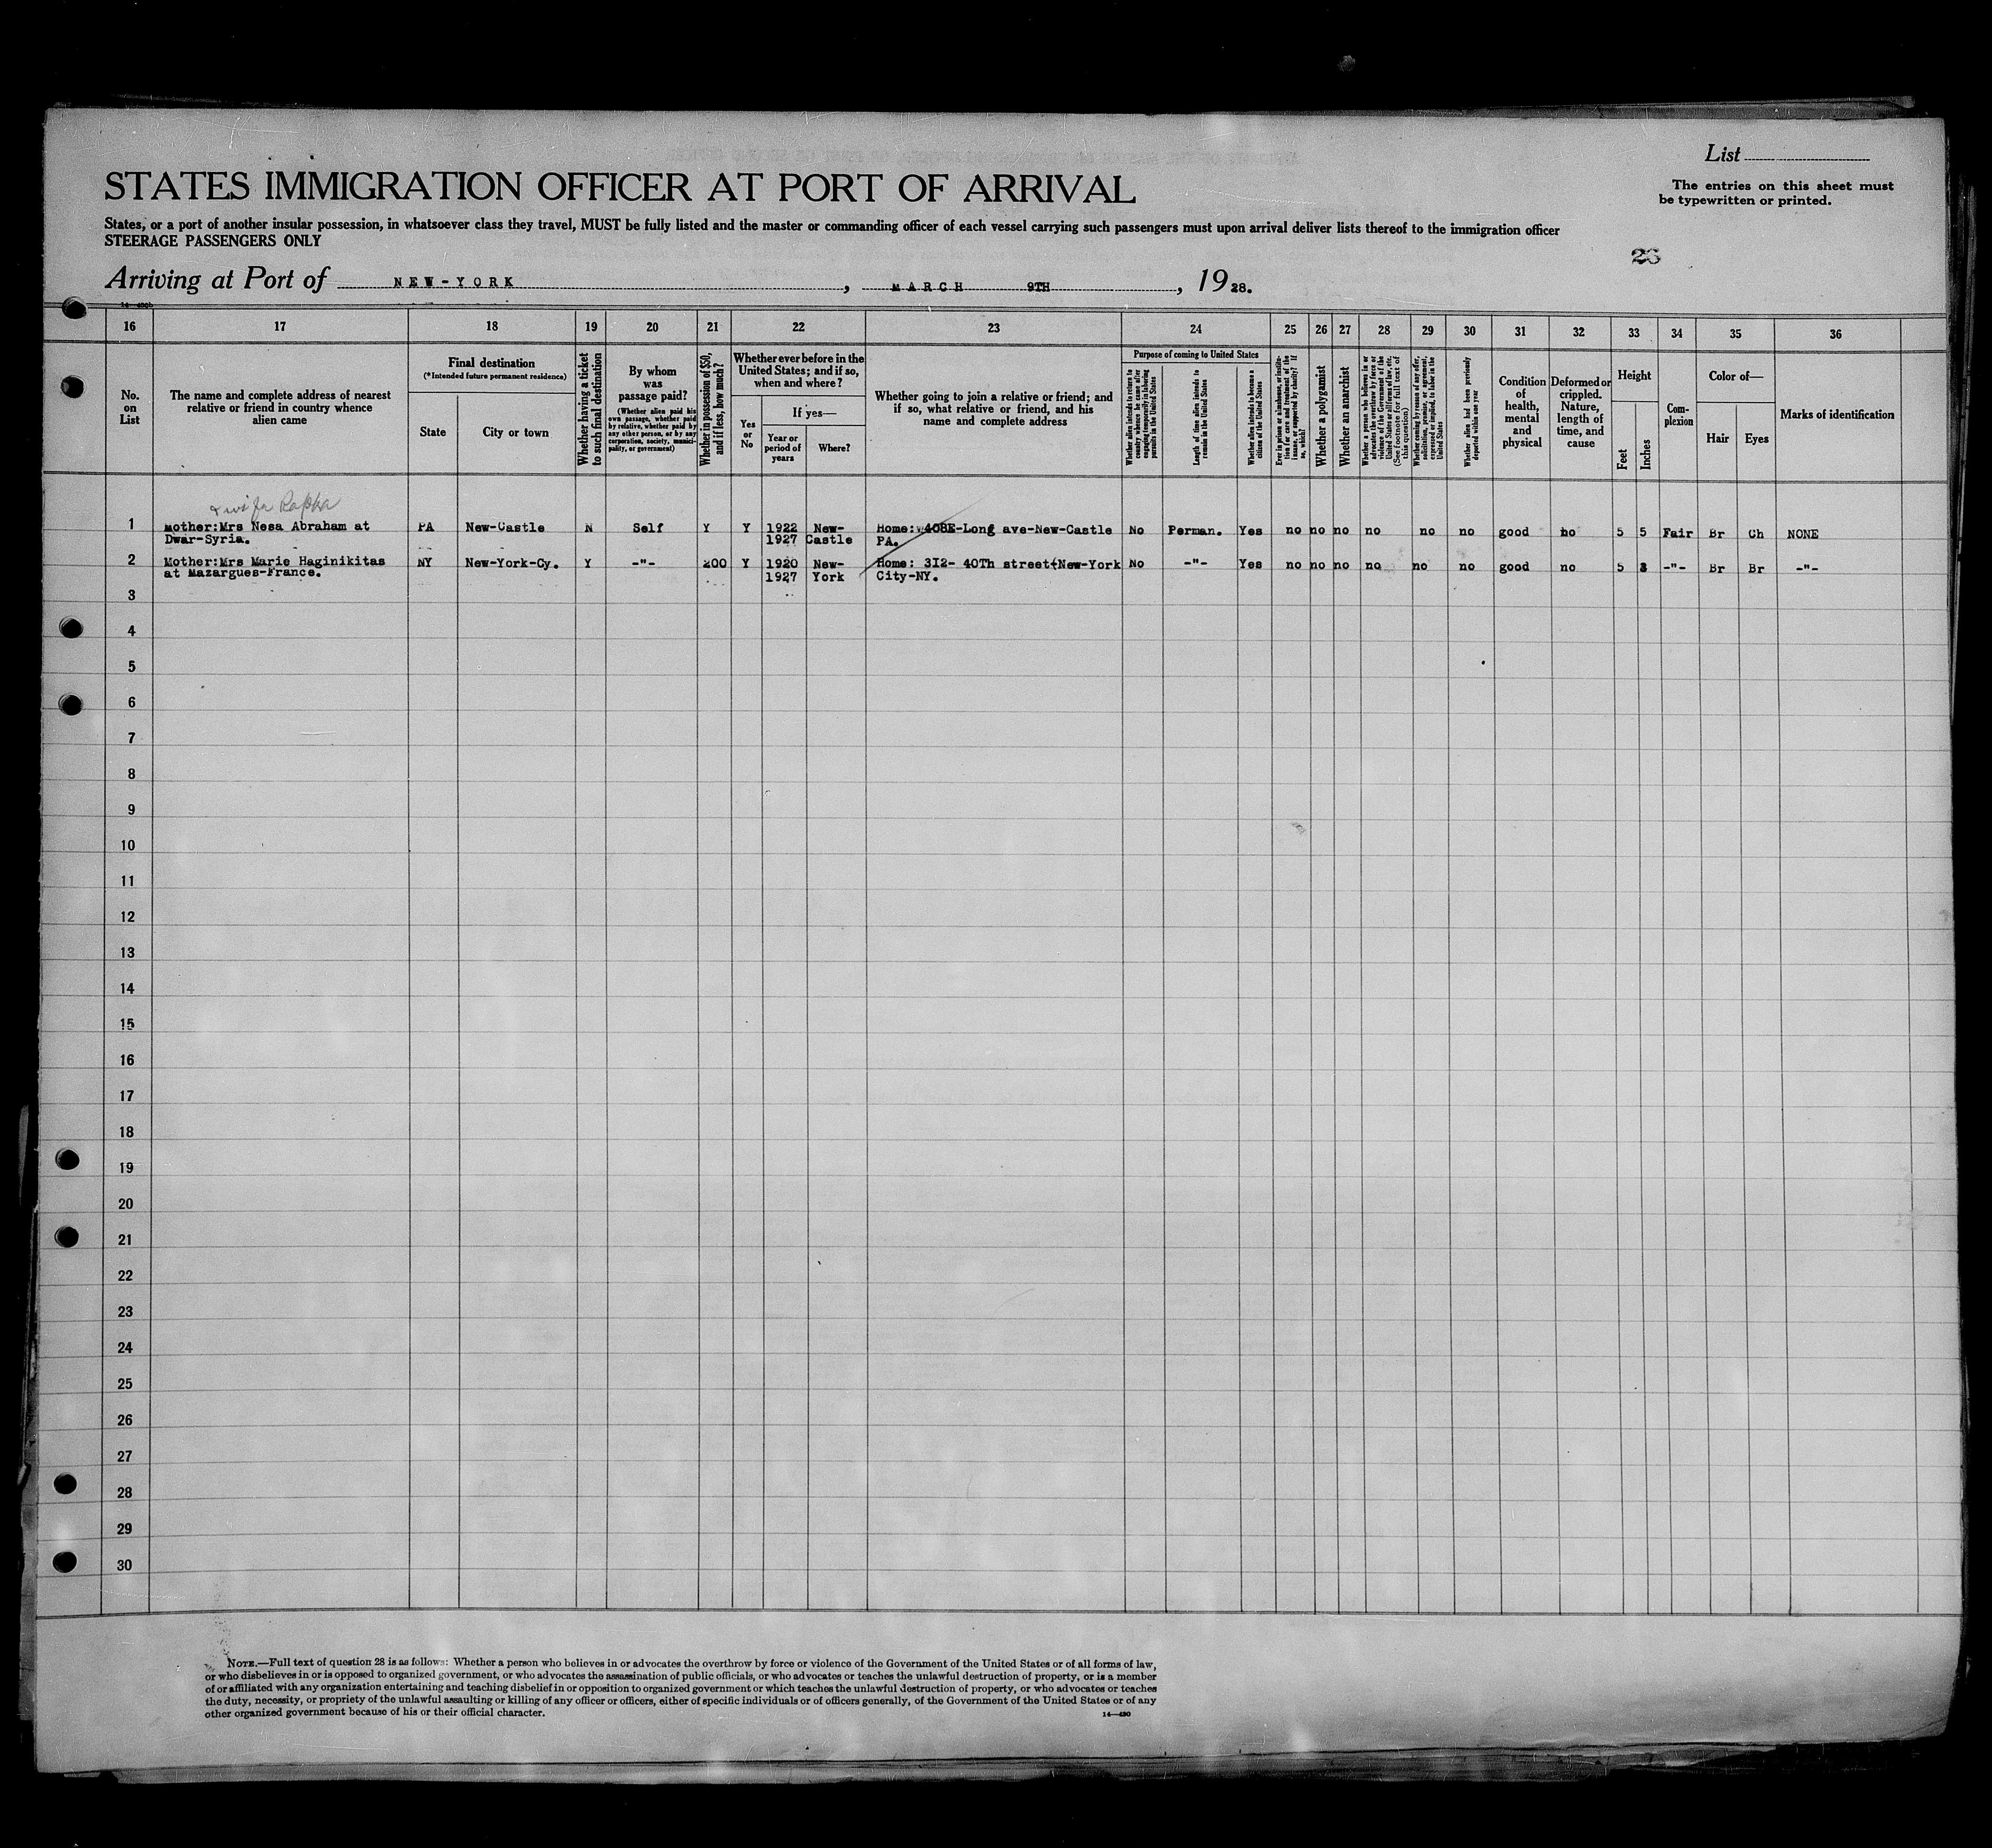 List
The entries on this sheet must
be typewritten or printed.
STATES IMMIGRATION OFFICER AT PORT OF ARRIVAL
States, or a port of another insular possession, in whatsoever class they travel, MUST be fully listed and the master or commanding officer of each vessel carrying such passengers must upon arrival deliver lists thereof to the immigration officer
STEERAGE PASSENGERS ONLY
Arriving at Port of NEW-YORK, MARCH 9TH, 1928.
16 17 18 19 20 21 22 23 24 25 26 27 28 29 30 31 32 33 34 35 36
No.
on
List
The name and complete address of nearest
relative or friend in country whence
alien came
Final destination
(*Intended future permanent residence)
State
City or town
Whether having a ticket
to such final destination
By whom
was
passage paid?
(Whether alien paid his
own passage, whether paid
by relative, whether paid by
any other person, or by any
corporation, society, munici-
pality, or government)
Whether in possession of $50,
and if less, how much?
Whether ever before in the
United States; and if so,
when and where?
Yes
or
No
If yes—
Year or
period of
years
Where?
Whether going to join a relative or friend; and
if so, what relative or friend, and his
name and complete address
Purpose of coming to United States
Whether alien intends to return to
country whence he came after
engaging temporarily in laboring
pursuits in the United States
Length of time alien intends to
remain in the United States
Whether alien intends to become a
citizen of the United States
Ever in prison or almshouse, or institu-
tion for care and treatment of the
insane, or supported by charity? If
so, which?
Whether a polygamist
Whether an anarchist
Whether a person who believes in or
advocates the overthrow by force or
violence of the Government of the
United States or all forms of law, etc.
(See footnote for full text of
this question)
Whether coming by reason of any offer,
solicitation, promise, or agreement,
expressed or implied, to labor in the
United States
Whether alien had been previously
deported within one year
Condition
of
health,
mental
and
physical
Deformed or
crippled.
Nature,
length of
time, and
cause
Height
Feet
Inches
Com-
plexion
Color of—
Hair
Eyes
Marks of identification
& wife
1 Mother:Mrs Nesa Abraham at PA New-Castle N Self Y Y 1922 New- Home: 408E-Long ave-New-Castle No Perman. Yes no no no no no no good no 5 5 Fair Br Ch NONE
Dwar-Syria. 1927 Castle PA.
2 Mother:Mrs Marie Haginikitas NY New-York-Cy. Y -"- 200 Y 1920 New- Home: 3I2- 40Th street-New-York No -"- Yes no no no no no no good no 5 -"- Br Br -"-
at Mazargues-France. 1927 York City-NY.
3
4
5
6
7
8
9
10
11
12
13
14
15
16
17
18
19
20
21
22
23
24
25
26
27
28
29
30
NOTE.—Full text of question 28 is as follows: Whether a person who believes in or advocates the overthrow by force or violence of the Government of the United States or of all forms of law,
or who disbelieves in or is opposed to organized government, or who advocates the assassination of public officials, or who advocates or teaches the unlawful destruction of property, or is a member
of or affiliated with any organization entertaining and teaching disbelief in or opposition to organized government or which teaches the unlawful destruction of property, or who advocates or teaches
the duty, necessity, or propriety of the unlawful assaulting or killing of any officer or officers, either of specific individuals or of officers generally, of the Government of the United States or of any
other organized government because of his or their official character.
14—490